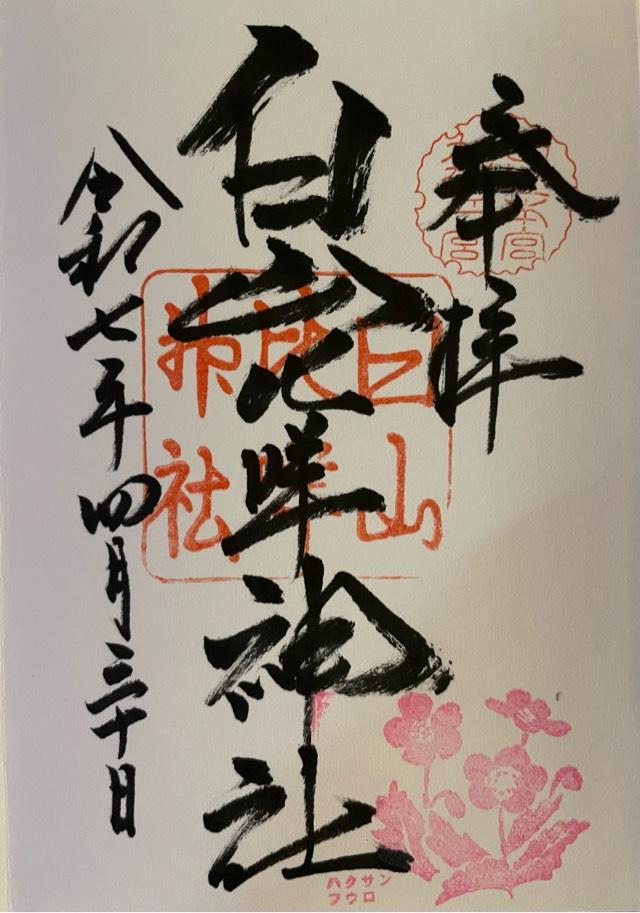 奉拝
白山比咩神社
令和七年四月三十日
白山
比咩
神社
ハクサン
フウロ